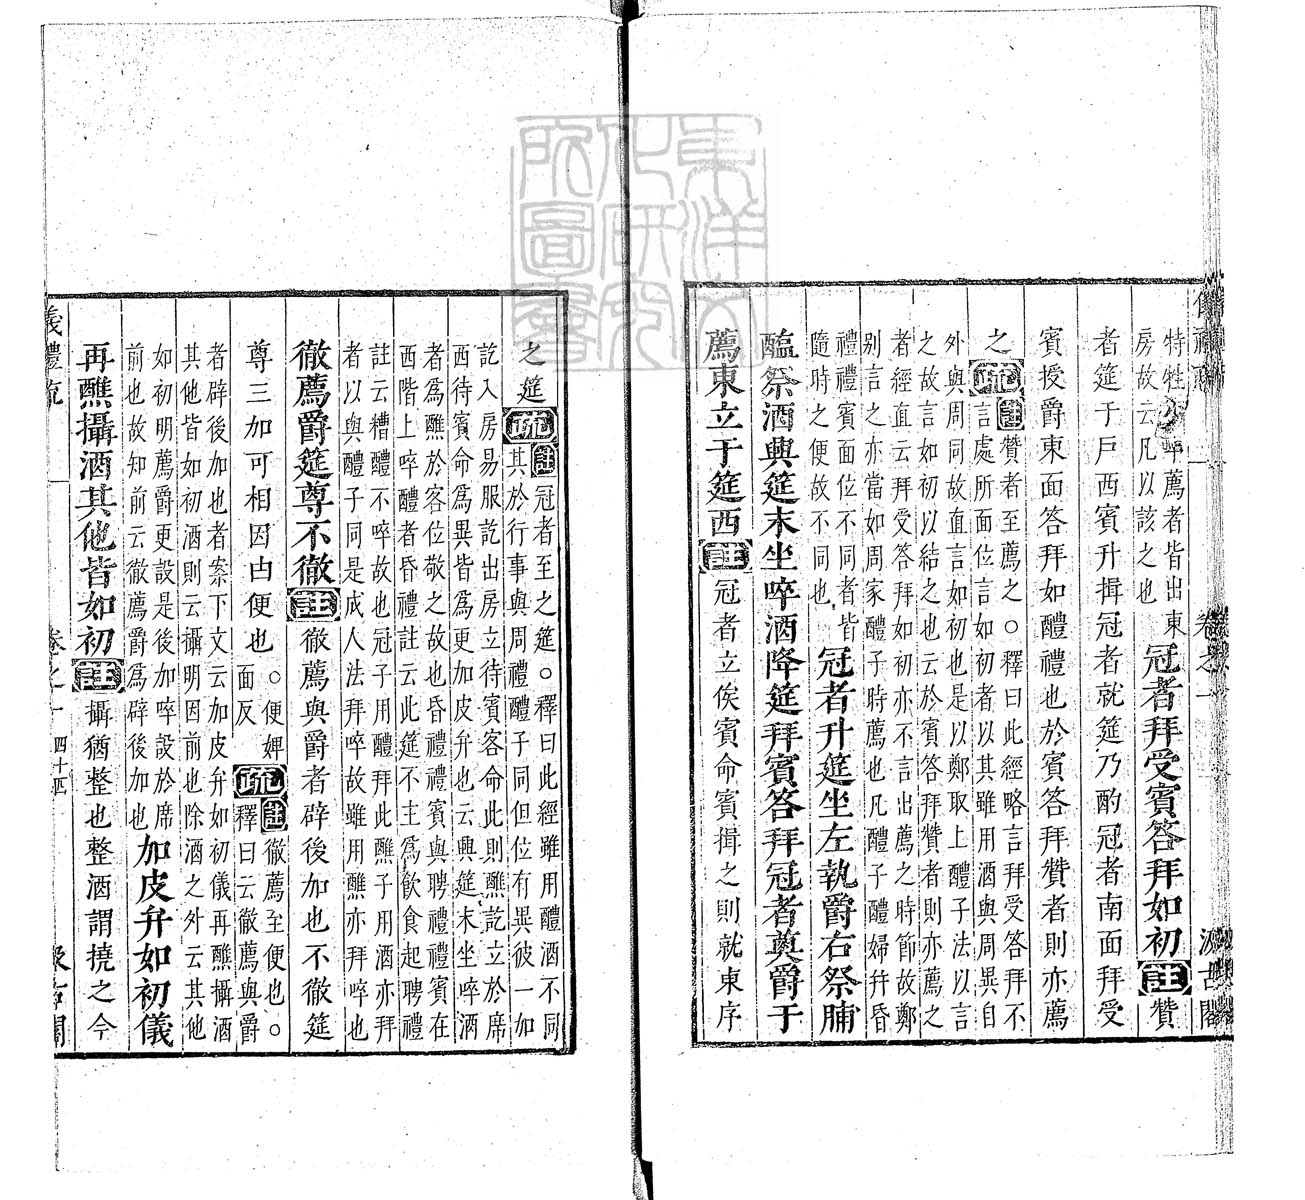 儀禮疏 卷之一 汲古閣
特牲少牢薦者皆出東
房故云凡以該之也
冠者拜受賓答拜如初註贊
者筵于戶西賓升揖冠者就筵乃酌冠者南面拜受
賓授爵東面答拜如醴禮也於賓答拜贊者則亦薦
之疏註贊者至薦之○釋曰此經略言拜受答拜不
言處所面位言如初者以其雖用酒與周異自
外與周同故直言如初也是以鄭取上醴子法以言
之故言如初以結之也云於賓答拜贊者則亦薦之
者經直云拜受答拜如初亦不言出薦之時節故鄭
別言之亦當如周家醴子時薦也凡醴子醴婦幷昏
禮禮賓面位不同者皆
隨時之便故不同也
冠者升筵坐左執爵右祭脯
醢祭酒興筵末坐啐酒降筵拜賓答拜冠者奠爵于
薦東立于筵西註冠者立俟賓命賓揖之則就東序
之筵疏註冠者至之筵○釋曰此經雖用醴酒不同
其於行事與周禮醴子同但位有異彼一如
訖入房易服訖出房立待賓客命此則醮訖立於席
西待賓命爲異皆爲更加皮弁也云興筵末坐啐酒
者爲醮於客位敬之故也昏禮禮賓與聘禮禮賓在
西階上啐醴者昏禮註云此筵不主爲飲食起聘禮
註云糟醴不啐故也冠子用醴拜此醮子用酒亦拜
者以與醴子同是成人法拜啐故雖用醮亦拜啐也
徹薦爵筵尊不徹註徹薦與爵者辟後加也不徹筵
尊三加可相因由便也○便婢
面反
疏註徹薦至便也○
釋曰云徹薦與爵
者辟後加也者案下文云加皮弁如初儀再醮攝酒
其他皆如初酒則云攝明因前也除酒之外云其他
如初明薦爵更設是後加啐設於席
前也故知前云徹薦爵爲辟後加也
加皮弁如初儀
再醮攝酒其他皆如初註攝猶整也整酒謂撓之今
儀禮疏 卷之一 四十五 汲古閣
東洋文化研究所圖書